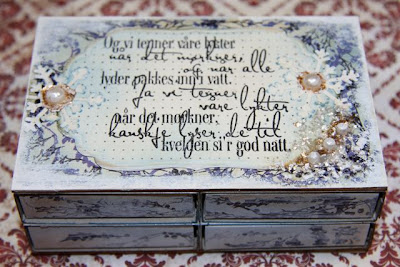 Og vi tenner våre lykter
når det mørkner,
og når alle
lyder pakkes inn i vatt.
Ja vi tenner
våre lykter
når det mørkner,
kanskje lyser de til
kvelden si'r god natt.